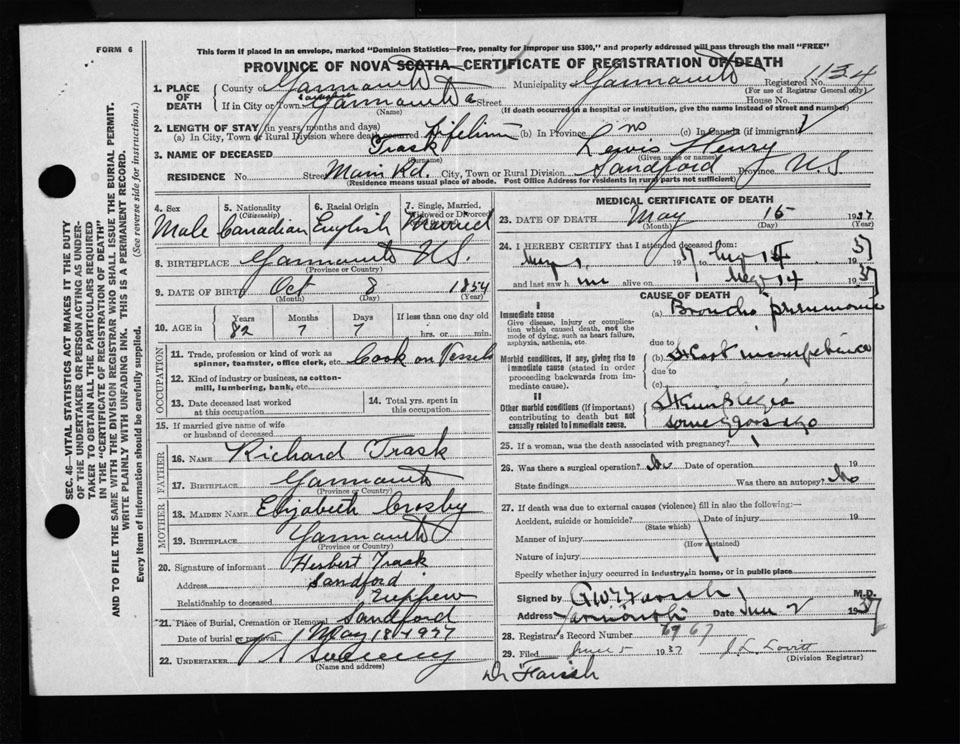 FORM 6
This form if placed in an envelope, marked "Dominion Statistics—Free, penalty for improper use $300," and properly addressed will pass through the mail "FREE"
PROVINCE OF NOVA SCOTIA—CERTIFICATE OF REGISTRATION OF DEATH
1. PLACE OF DEATH
County of Yarmouth Municipality Yarmouth Registered No. 1134
(For use of Registrar General only)
If in City or Town Yarmouth Street House No.
(Name) (If death occurred in a hospital or institution, give the name instead of street and number)
2. LENGTH OF STAY (in years, months and days)
(a) In City, Town or Rural Division where death occurred Lifetime (b) In Province (c) In Canada (if immigrant)
3. NAME OF DECEASED Trask Lewis Henry
(Surname) (Given name or names)
RESIDENCE No. Street Main Rd. City, Town or Rural Division Sandford Province N.S.
(Residence means usual place of abode. Post Office Address for residents in rural parts not sufficient)
4. Sex Male
5. Nationality (Citizenship) Canadian
6. Racial Origin English
7. Single, Married, Widowed or Divorced Married
8. BIRTHPLACE Yarmouth N.S.
(Province or Country)
9. DATE OF BIRTH Oct 8 1854
(Month) (Day) (Year)
10. AGE in Years Months Days If less than one day old
82 7 7 hrs. or min.
OCCUPATION
11. Trade, profession or kind of work as spinner, teamster, office clerk, etc. Cook on Vessels
12. Kind of industry or business, as cotton-mill, lumbering, bank, etc.
13. Date deceased last worked at this occupation
14. Total yrs. spent in this occupation
15. If married give name of wife or husband of deceased
FATHER
16. NAME Richard Trask
17. BIRTHPLACE Yarmouth
(Province or Country)
MOTHER
18. MAIDEN NAME Elizabeth Crosby
19. BIRTHPLACE Yarmouth
(Province or Country)
20. Signature of informant Herbert Trask
Address Sandford
Relationship to deceased Nephew
21. Place of Burial, Cremation or Removal Sandford
Date of burial or removal May 18 1937
22. UNDERTAKER Sweeny
(Name and address)
MEDICAL CERTIFICATE OF DEATH
23. DATE OF DEATH May 15 1937
(Month) (Day) (Year)
24. I HEREBY CERTIFY that I attended deceased from:
May 1, 1937 May 14 1937
and last saw him alive on May 14 1937
CAUSE OF DEATH
I
Immediate cause
Give disease, injury or complication which caused death, not the mode of dying, such as heart failure, asphyxia, asthenia, etc.
(a) Broncho pneumonia
due to
Morbid conditions, if any, giving rise to immediate cause (stated in order proceeding backwards from immediate cause).
(b) Heart incompetence
due to
(c)
II
Other morbid conditions (if important) contributing to death but not causally related to immediate cause.
Hemiplegia
some years ago
25. If a woman, was the death associated with pregnancy?
26. Was there a surgical operation? No Date of operation 19
State findings Was there an autopsy? No
27. If death was due to external causes (violence) fill in also the following:—
Accident, suicide or homicide? Date of injury 19
(State which)
Manner of injury
(How sustained)
Nature of injury
Specify whether injury occurred in industry, in home, or in public place
Signed by Farish M.D.
Address Yarmouth Date June 2 1937
28. Registrar's Record Number 67
29. Filed June 5 1937 Lovitt
(Division Registrar)
Dr Farish
SEC. 46—VITAL STATISTICS ACT MAKES IT THE DUTY
OF THE UNDERTAKER OR PERSON ACTING AS UNDERTAKER TO OBTAIN ALL THE PARTICULARS REQUIRED
IN THE "CERTIFICATE OF REGISTRATION OF DEATH"
AND TO FILE THE SAME WITH THE DIVISION REGISTRAR WHO SHALL ISSUE THE BURIAL PERMIT.
WRITE PLAINLY WITH UNFADING INK. THIS IS A PERMANENT RECORD.
Every item of information should be carefully supplied. (See reverse side for instructions.)